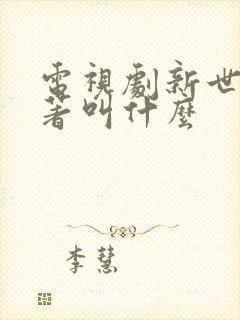 電視劇新世
著叫什麼
李慧